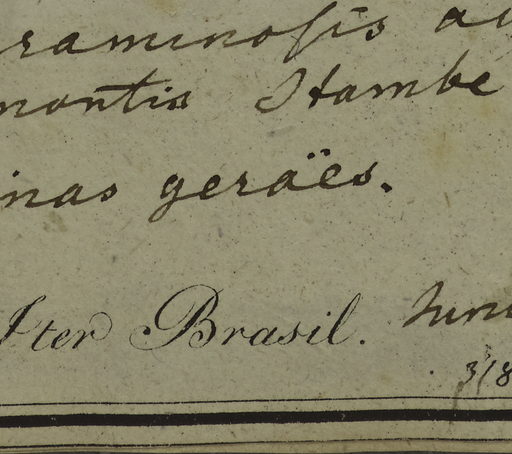 raminosis ad
montis Itambe
inas geraës.
Iter Brasil. Juni
3/8